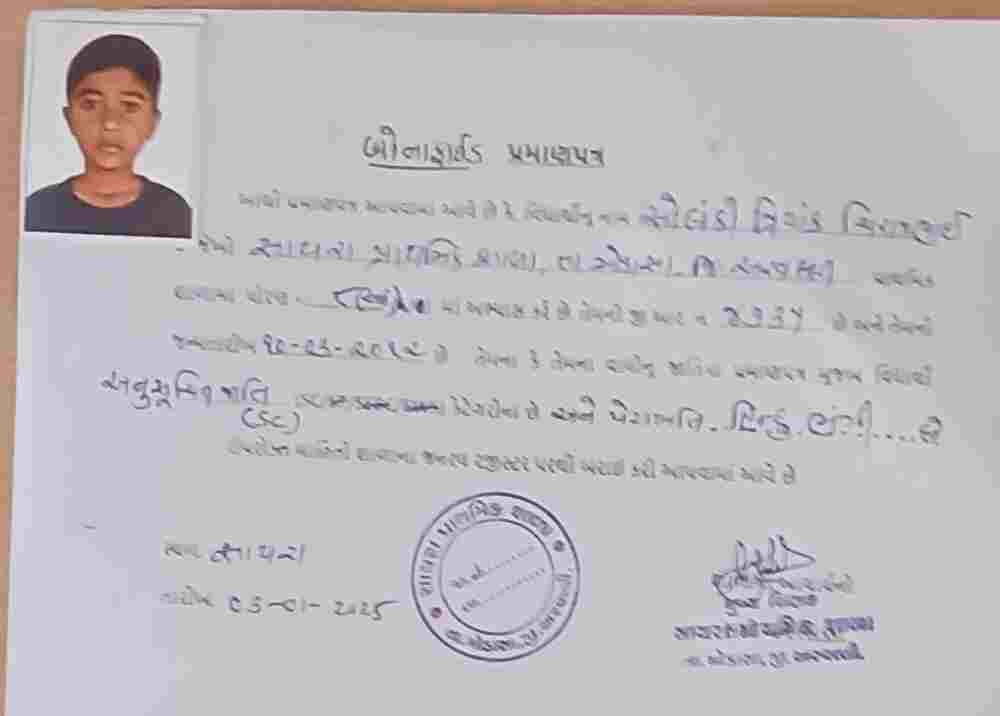 બોનાફાઈડ પ્રમાણપત્ર
આથી પ્રમાણપત્ર આપવામાં આવે છે કે વિદ્યાર્થીનું નામ સોલંકી પ્રિયંક ચિરાગભાઈ
જેઓ સાયરા પ્રાથમિક શાળા, તા મોડાસા, જિ અરવલ્લી પ્રાથમિક
શાળામાં ધોરણ માં અભ્યાસ કરે છે તેમનો જી આર નં ૪૩૩૫ છે અને તેમની
જન્મતારીખ છે તેમના કે તેમના વાલીનું જાતિના પ્રમાણપત્ર મુજબ વિદ્યાર્થી
અનુસૂચિત જાતિ કેટેગરીના છે અને પેટાજાતિ હિન્દુ છે
(SC)
ઉપરોક્ત માહિતી શાળાના જનરલ રજીસ્ટર પરથી ખરાઈ કરી આપવામાં આવે છે
સ્થળ સાયરા
તારીખ 03-01-2025
સાયરા પ્રાથમિક શાળા
તા.મોડાસા, જી.અરવલ્લી
મુખ્ય શિક્ષક
સાયરા પ્રાથમિક શાળા
તા.મોડાસા, જી. અરવલ્લી